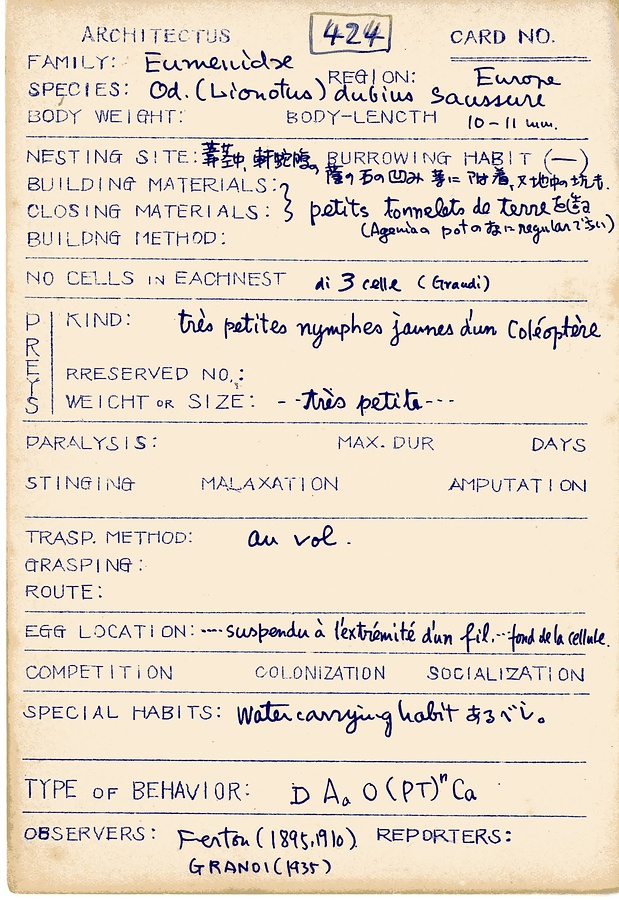 ARCHITECTUS 424 CARD NO.
FAMILY: Eumenidse
REGION: Europe
SPECIES: Od. (Lionotus) dubius Saussure
BODY WEIGHT: BODY-LENGTH 10-11 mm.
NESTING SITE: BURROWING HABIT (—)
蔭の石の凹み 又地中の坑も.
BUILDING MATERIALS:
CLOSING MATERIALS: petits tonnelets de terre
BUILDNG METHOD: (Ageniaの potの regularでない)
NO CELLS IN EACHNEST di 3 celle (Grandi)
PREYS
KIND: très petites nymphes jaunes d'un Coléoptère
RRESERVED NO.:
WEIGHT OR SIZE: --très petite---
PARALYSIS: MAX. DUR DAYS
STINGING MALAXATION AMPUTATION
TRASP. METHOD: au vol.
GRASPING:
ROUTE:
EGG LOCATION: ---- suspendu à l'extrémité d'un fil.-- fond de la cellule.
COMPETITION COLONIZATION SOCIALIZATION
SPECIAL HABITS: Water carrying habit あるべし。
TYPE OF BEHAVIOR: D Aa O (PT)ⁿ Ca
OBSERVERS: Ferton (1895, 1910). REPORTERS:
GRANDI (1935)